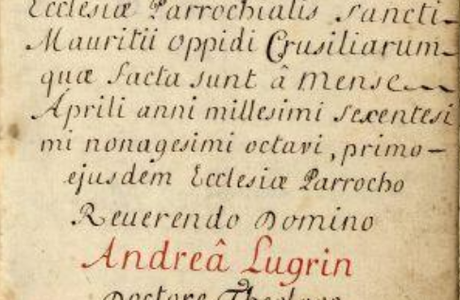 Ecclesiæ Parrochialis Sancti-
Mauritii oppidi Crusiliarum
quæ facta sunt â mense
Aprili anni millesimi sexentesi
mi nonagesimi octavi, primo-
ejusdem Ecclesiæ Parrocho
Reuerendo Domino
Andreâ Lugrin
Doctore Theologo